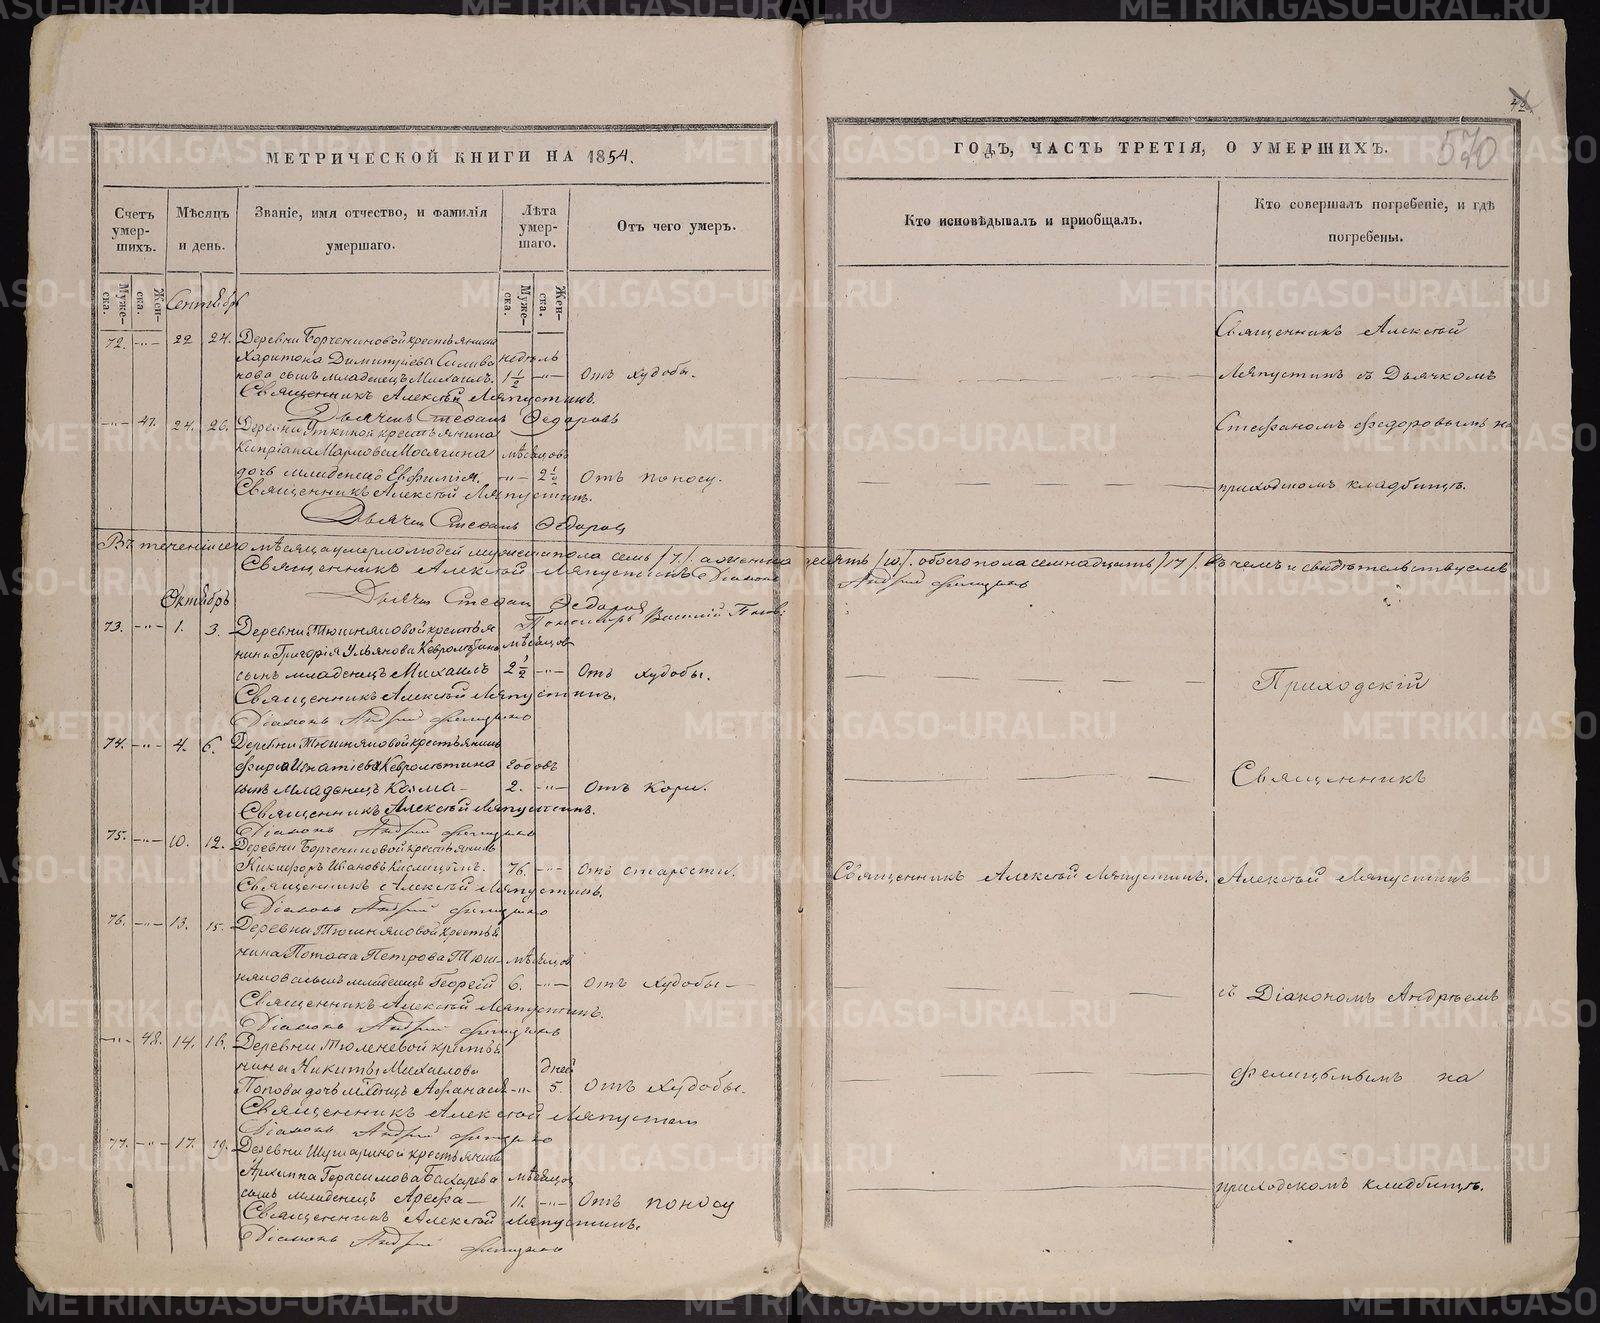 МЕТРИЧЕСКОЙ КНИГИ НА 1854.
Счетъ умер-шихъ.
Мѣсяцъ и день.
Званіе, имя отчество, и фамилія умершаго.
Лѣта умер-шаго.
Отъ чего умеръ.
Муже-ска.
Жен-ска.
Муже-ска.
Жен-ска.
Сентябрь
72. -"- 22 24. Деревни крестьянина
Харитона Димитріева Силива недѣль
нова сынъ младенецъ Михаилъ. 1 1/2 -"- Отъ худобы.
Священникъ Алексѣй Ляпустинъ.
Дьячекъ Стефанъ Ѳедоровъ
-"- 47. 24. 26. Деревни крестьянина
Кипріана Маркова Мосягина мѣсяцовъ
дочь младенецъ Евфимія. -"- 2 1/2 Отъ поносу.
Священникъ Алексѣй Ляпустинъ.
Дьячекъ Стефанъ Ѳедоровъ
Въ теченіи сего мѣсяца умерло людей мужеска пола семь /7/. а женска десять /10/. обоего пола семнадцать /17/. въ чемъ и свидѣтельствуемъ
Священникъ Алексѣй Ляпустинъ Діаконъ Андрей
Дьячекъ Стефанъ Ѳедоровъ
Пономарь Василій
Октябрь
73. -"- 1. 3. Деревни крестья
нина Григорія Ульянова мѣсяцовъ
сынъ младенецъ Михаилъ 2 1/2 -"- Отъ худобы.
Священникъ Алексѣй Ляпустинъ.
Діаконъ Андрей
74. -"- 4. 6. Деревни крестьянина
Игнатіева годовъ
сынъ младенецъ Козма 2. -"- Отъ кори.
Священникъ Алексѣй Ляпустинъ.
Діаконъ Андрей
75. -"- 10. 12. Деревни крестьянинъ
Никифоръ Ивановъ Кислицынъ. 76. -"- Отъ старости.
Священникъ Алексѣй Ляпустинъ.
Діаконъ Андрей
76. -"- 13. 15. Деревни крестья
нина Потапа Петрова Тюш- мѣсяцов
сынъ младенецъ Георгій 6. -"- Отъ худобы
Священникъ Алексѣй Ляпустинъ.
Діаконъ Андрей
-"- 48. 14. 16. Деревни Тюленевой крестья
нина Никиты Михаилова дней
Попова дочь младенецъ Афанасія -"- 5. Отъ худобы.
Священникъ Алексѣй Ляпустинъ
Діаконъ Андрей
77. -"- 17. 19. Деревни крестьянина
Архиппа Герасимова Бахарева мѣсяцов
сынъ младенецъ Арефа 11. -"- Отъ поносу
Священникъ Алексѣй Ляпустинъ.
Діаконъ Андрей
570
ГОДЪ, ЧАСТЬ ТРЕТІЯ, О УМЕРШИХЪ.
Кто исповѣдывалъ и пріобщалъ.
Кто совершалъ погребеніе, и гдѣ погребены.
Священникъ Алексѣй
Ляпустинъ съ Дьячкомъ
Стефаномъ Федоровымъ на
приходскомъ кладбищѣ.
Приходскій
Священникъ
Священникъ Алексѣй Ляпустинъ. Алексѣй Ляпустинъ
съ Діакономъ Андреемъ
Фелицынымъ на
приходскомъ кладбищѣ.
METRIKI.GASO-URAL.RU